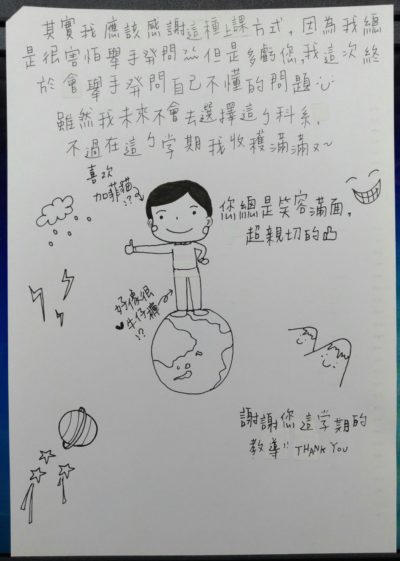 其實我應該感謝這種上課方式，因為我總
是很害怕舉手發問 但是多虧您，我這次終
於會舉手發問自己不懂的問題
雖然我未來不會去選擇這ㄅ科系，
不過在這ㄅ学期我收穫滿滿ㄡ~
喜欢
加菲貓!?
您總是笑容滿面，
超親切的
好像很
♥牛仔褲
!?
謝謝您這学期的
教導!! THANK YOU